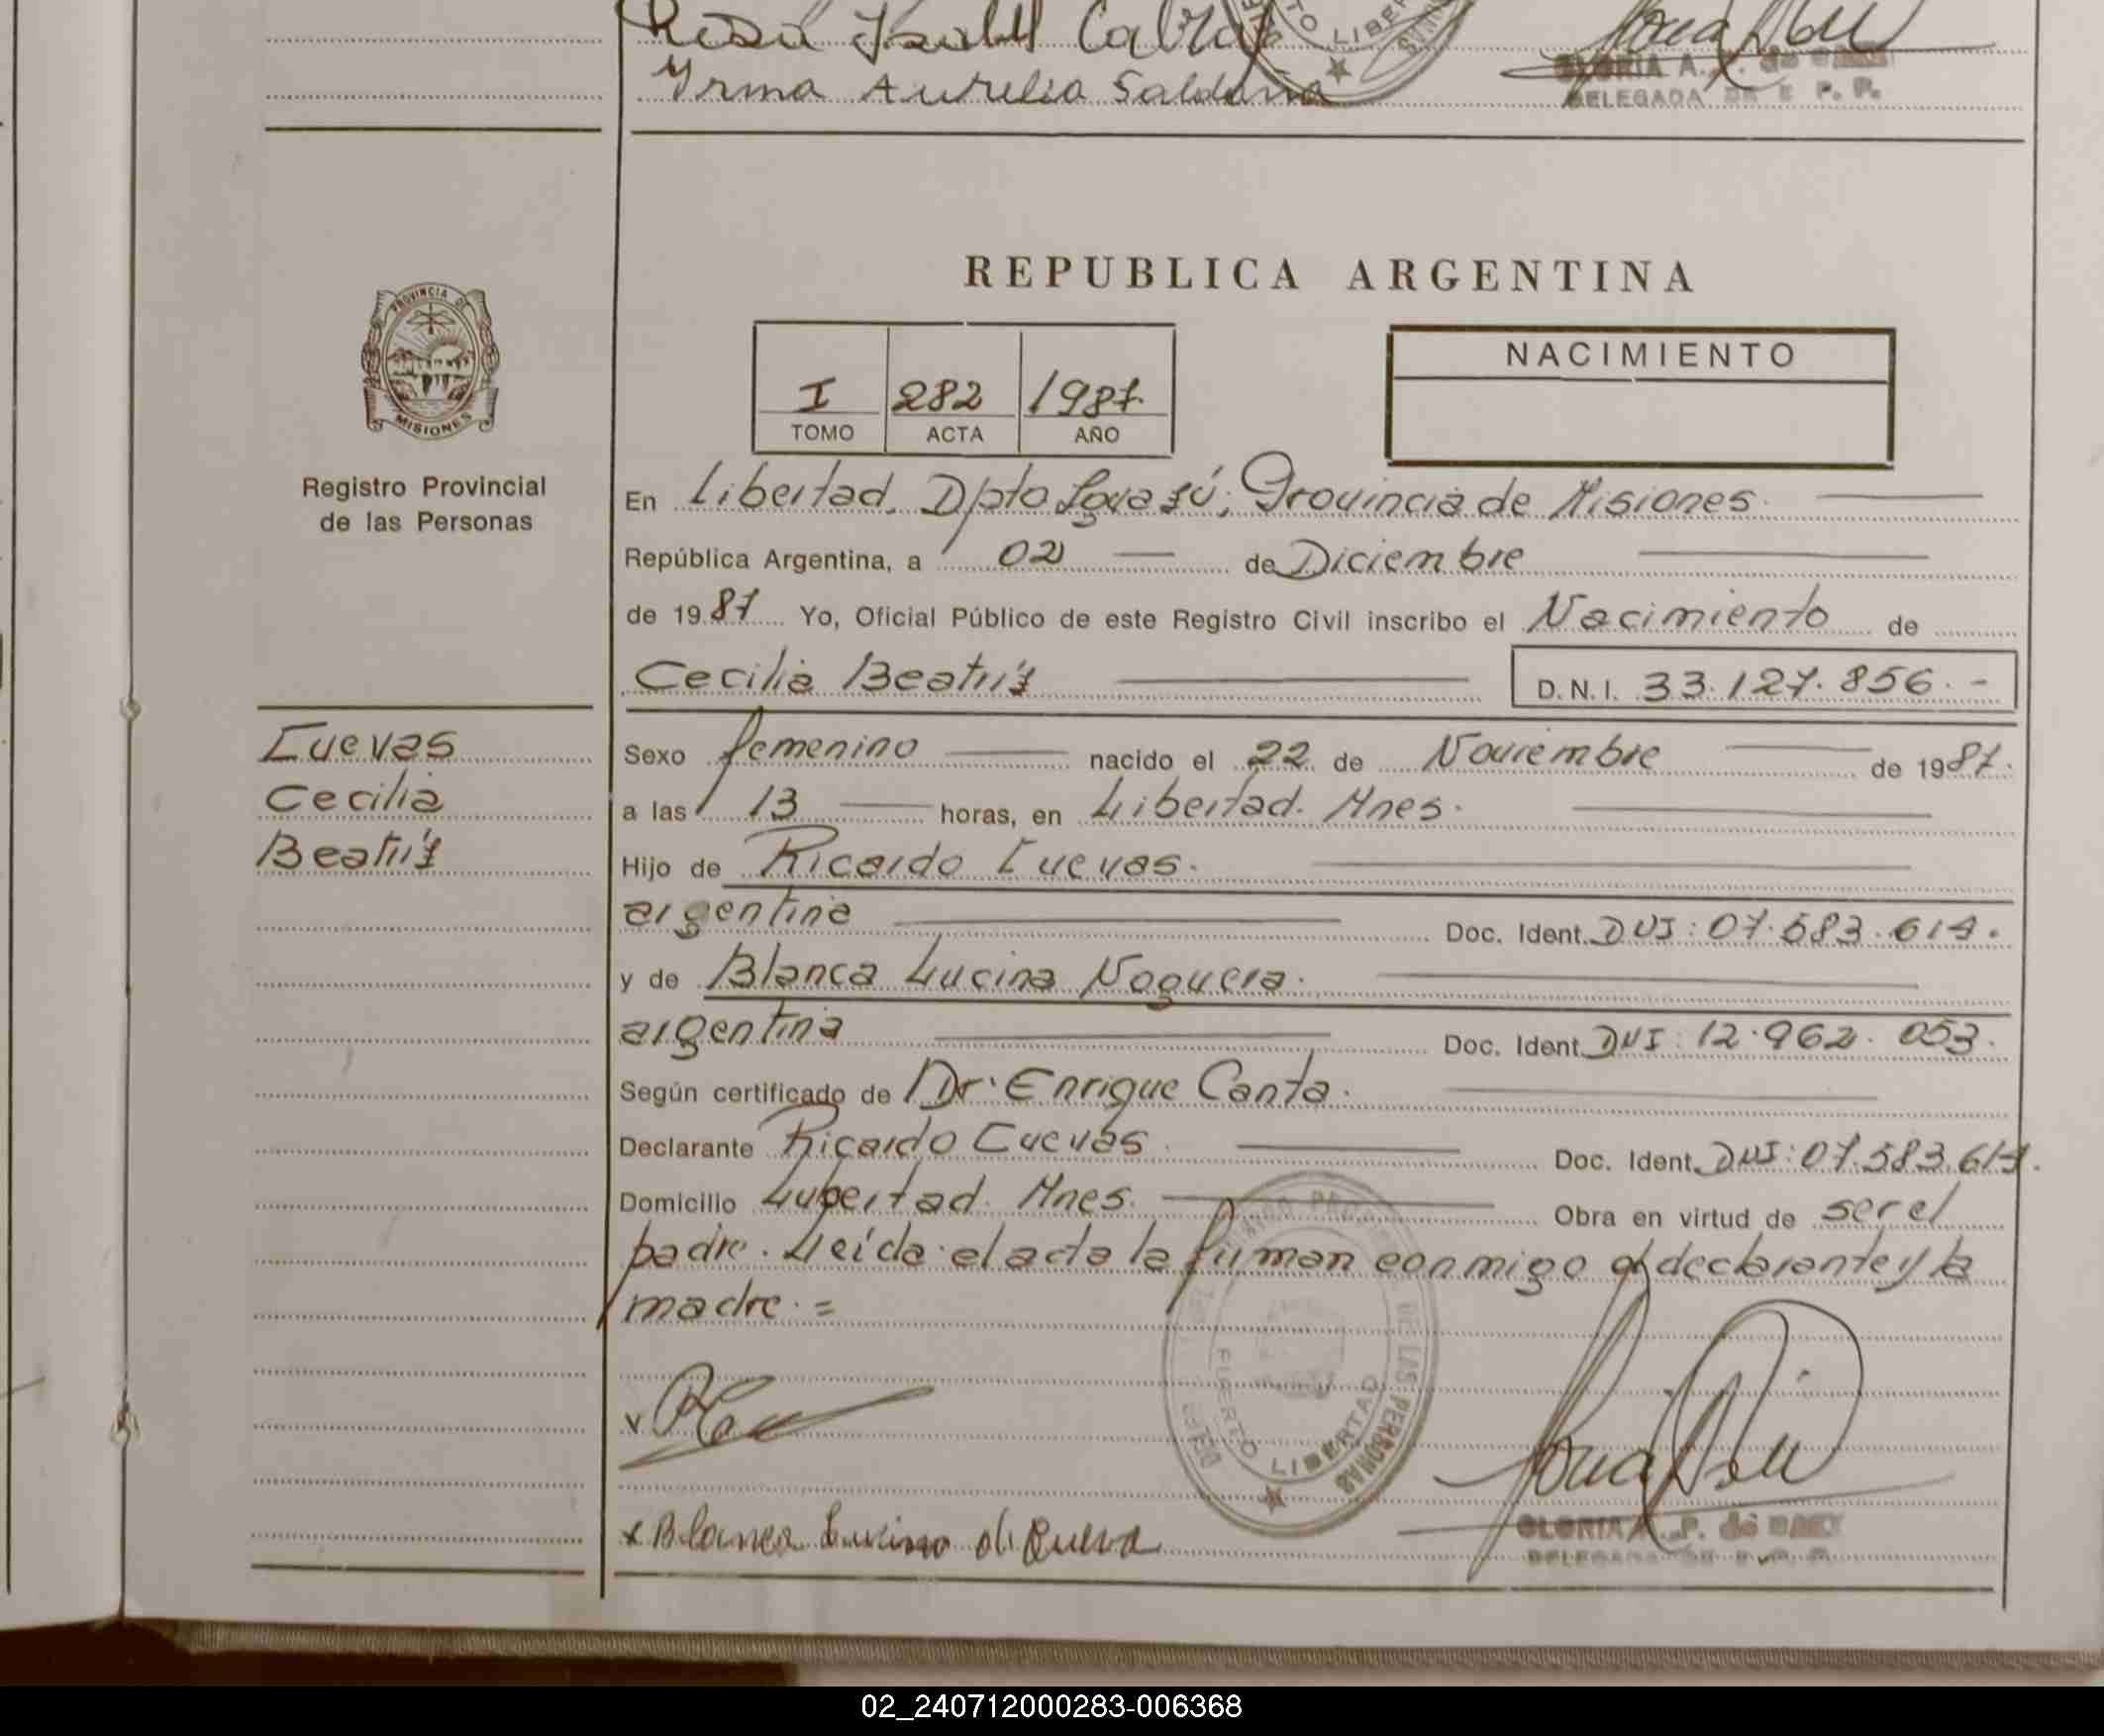 Rosa Isabel Cabral
Yrma Aurelia Saldaña
LIBER
GLORIA A. P. de
DELEGADA DE E P. P.
REPUBLICA ARGENTINA
PROVINCIA DE
MISIONES
Registro Provincial
de las Personas
I 282 1987
TOMO ACTA AÑO
NACIMIENTO
En Libertad, Dpto Iguazú; Provincia de Misiones.
República Argentina, a 02 de Diciembre
de 1987 Yo, Oficial Público de este Registro Civil inscribo el Nacimiento de
Cecilia Beatríz D.N.I. 33.127.856.-
Cuevas
Cecilia
Beatríz
Sexo femenino nacido el 22 de Noviembre de 1987.
a las 13 horas, en Libertad. Mnes.
Hijo de Ricardo Cuevas.
argentina Doc. Ident. DNI: 07.583.614.
y de Blanca Lucina Noguera.
argentina Doc. Ident. DNI: 12.962.053.
Según certificado de Dr. Enrique Canta.
Declarante Ricardo Cuevas. Doc. Ident. DNI: 07.583.614.
Domicilio Libertad. Mnes. Obra en virtud de ser el
padre. Leída el acta la firman conmigo el declarante y la
madre. =
DE LAS PERSONAS
PUERTO LIBERTAD
x Blanca Lucina
GLORIA A. P. de
02_240712000283-006368